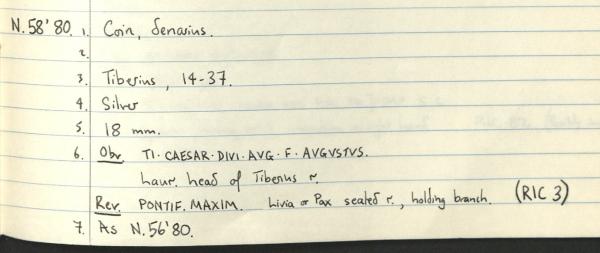 N.58'80. 1. Coin, denarius.
2.
3. Tiberius, 14-37.
4. Silver
5. 18 mm.
6. Obv. TI·CAESAR·DIVI·AVG·F·AVGVSTVS.
Laur. head of Tiberius r.
Rev. PONTIF. MAXIM. Livia or Pax seated r., holding branch. (RIC 3)
7. As N.56'80.